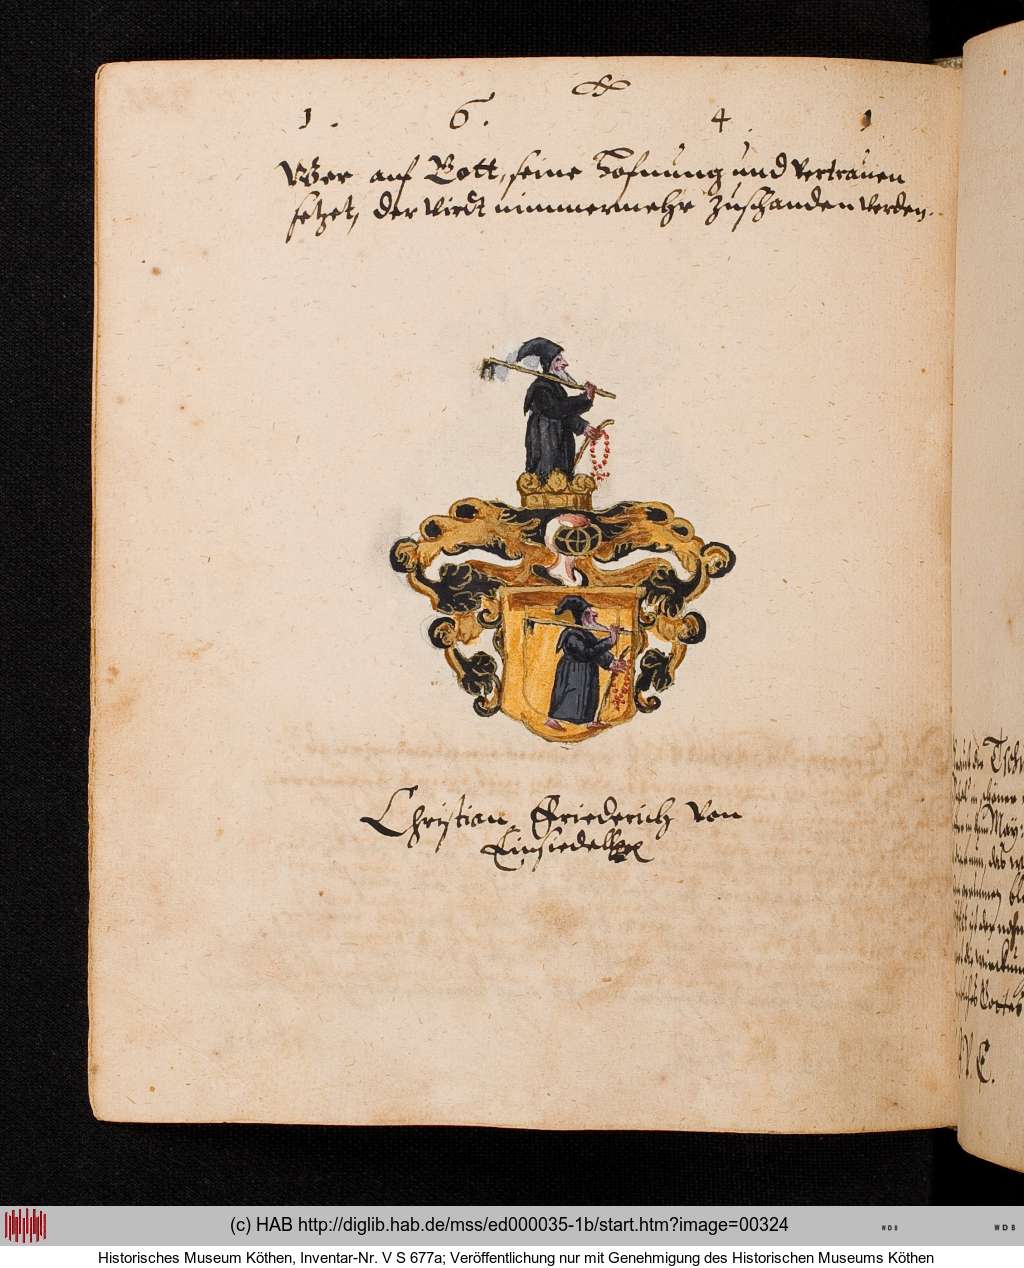 1. 6. 4. 1
Wer auf Gott, seine Hofnung und Vertrauen
setzet, der wirdt nimmermehr zuschanden werden.
Christian Friederich von
Einsiedell
(c) HAB http://diglib.hab.de/mss/ed000035-1b/start.htm?image=00324
WDB
WDB
Historisches Museum Köthen, Inventar-Nr. V S 677a; Veröffentlichung nur mit Genehmigung des Historischen Museums Köthen